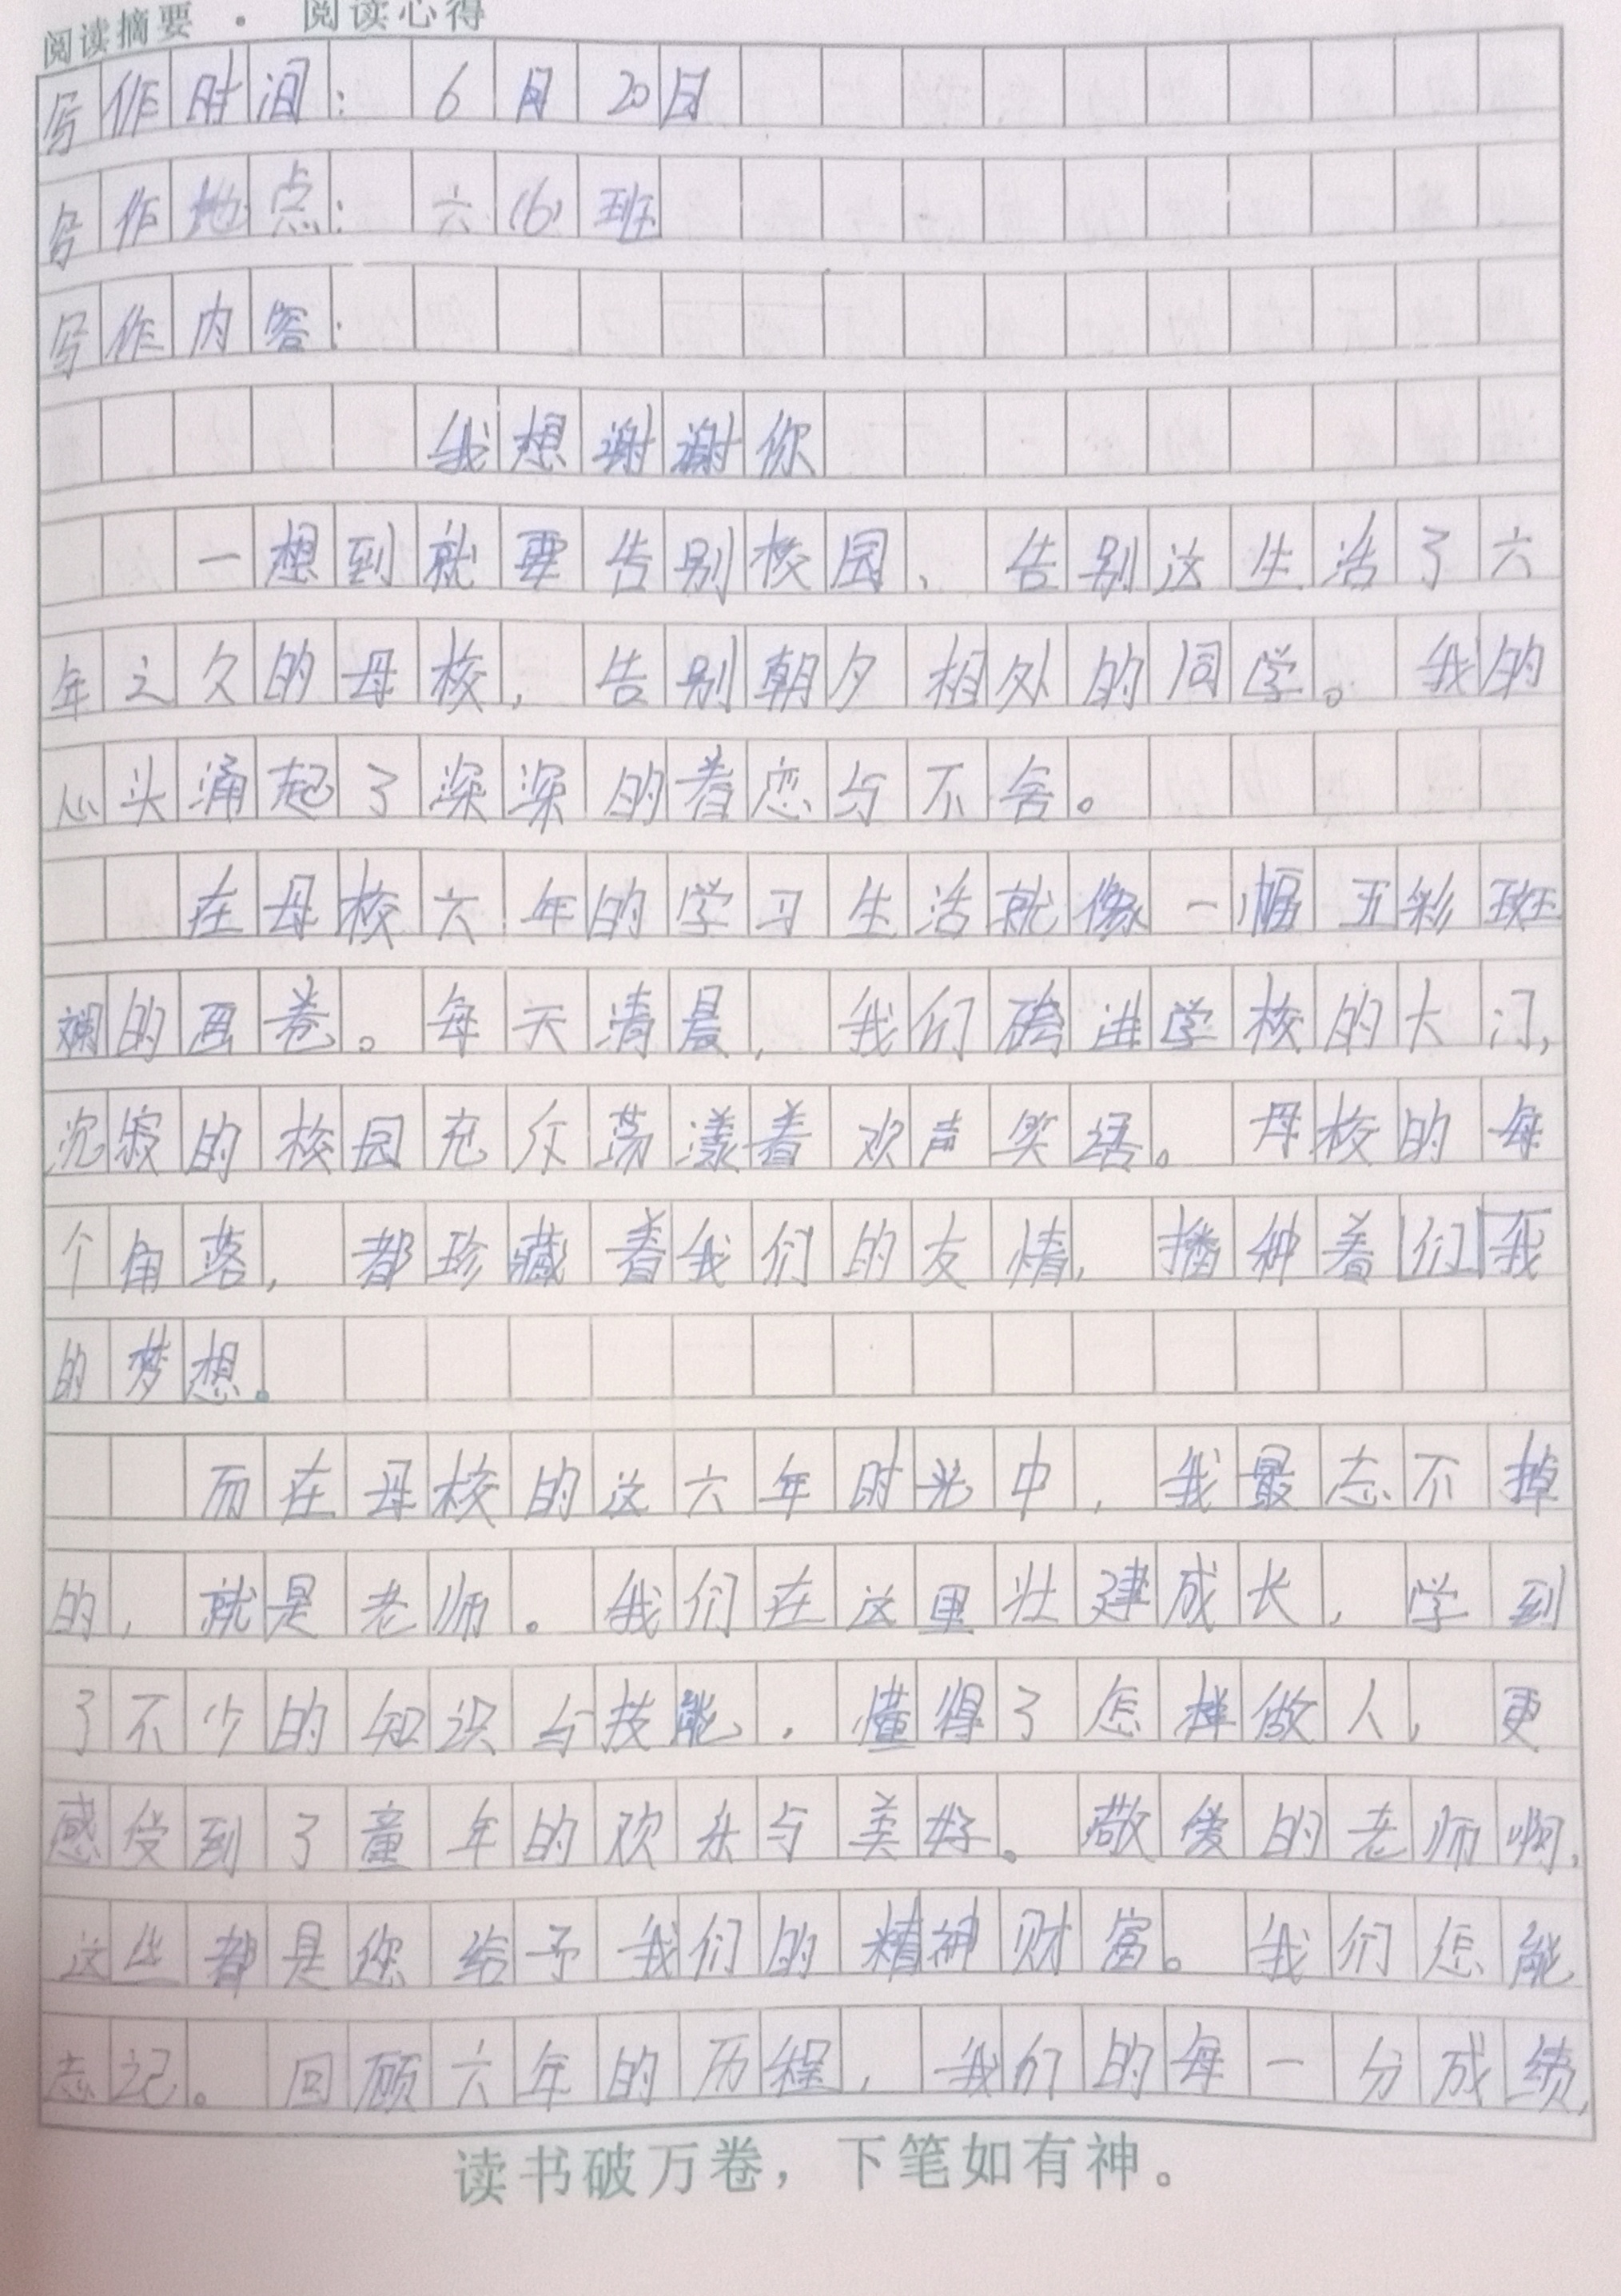 阅读摘要 · 阅读心得
写作时间： 6月20日
写作地点： 六(6)班
写作内容：
我想谢谢你
一想到就要告别校园、告别这生活了六
年之久的母校，告别朝夕相处的同学。我的
心头涌起了深深的眷恋与不舍。
在母校六年的学习生活就像一幅五彩斑
斓的画卷。每天清晨，我们踏进学校的大门，
沉寂的校园充斥荡漾着欢声笑语。母校的每
个角落，都珍藏着我们的友情，播种着们我
的梦想。
而在母校的这六年时光中，我最忘不掉
的，就是老师。我们在这里壮建成长，学到
了不少的知识与技能，懂得了怎样做人，更
感受到了童年的欢乐与美好。敬爱的老师啊，
这些都是您给予我们的精神财富。我们怎能
忘记。回顾六年的历程，我们的每一分成绩，
读书破万卷，下笔如有神。